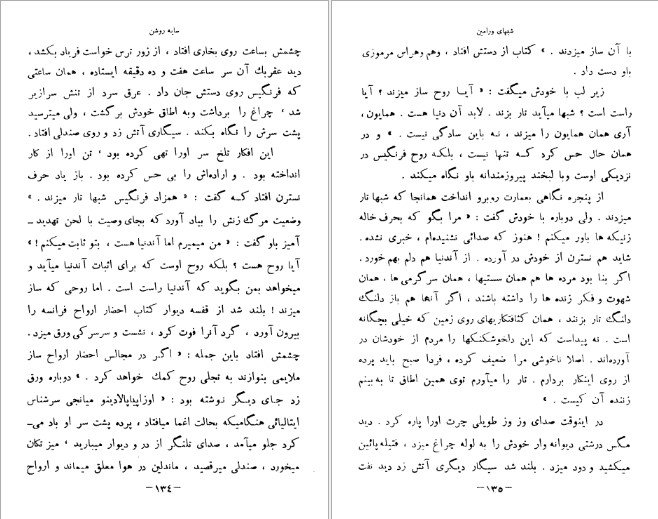 سایه روشن
چشمش بساعت روی بخاری افتاد ، از زور ترس خواست فریاد بکشد ،
دید عقربك آن سر ساعت هفت و ده دقیقه ایستاده ، همان ساعتی
که فرنگیس روی دستش جان داد . عرق سرد از تنش سرازیر
شد ، چراغ را برداشت وبه اطاق خودش برگشت ، ولی میترسید
پشت سرش را نگاه بکند . سیگاری آتش زد و روی صندلی افتاد .
این افکار تلخ سر اورا تهی کرده بود ، تن اورا از کار
انداخته بود . و اراده‌اش را بی حس کرده بود . باز یاد حرف
نسترن افتاد که گفت : « همزاد فرنگیس شبها تار میزند . »
وضعیت مرگ زنش را بیاد آورد که بجای وصیت با لحن تهدید ـ
آمیز باو گفت : « من میمیرم اما آندنیا هست ، بتو ثابت میکنم ! »
آیا روح هست ؟ بلکه روح اوست که برای اثبات آندنیا میآید و
میخواهد بمن بگوید که آندنیا راست است . اما روحی که ساز
میزند ! بلند شد از قفسه دیوار کتاب احضار ارواح فرانسه را
بیرون آورد ، گرد آنرا فوت کرد ، نشست و سرسرکی ورق میزد .
چشمش افتاد باین جمله : « اگر در مجالس احضار ارواح ساز
ملایمی بنوازند به تجلی روح کمك خواهد کرد . » دوباره ورق
زد جای دیگر نوشته بود : « اوزاپیاپالادینو میانجی سرشناس
ایتالیائی هنگامیکه بحالت اغما میافتاد ، پرده پشت سر او باد می‌ـ
کرد جلو میآمد ، صدای تلنگر از در و دیوار میبارید ، میز تکان
میخورد ، صندلی میرقصید ، ماندلین در هوا معلق میماند و ارواح
ـ ۱۳٤ ـ
شبهای ورامین
با آن ساز میزدند . » کتاب از دستش افتاد ، وهم وهراس مرموزی
باو دست داد .
زیر لب با خودش میگفت : « آیا روح ساز میزند ؟ آیا
راست است ؟ شبها میآید تار بزند . لابد آن دنیا هست . همایون ،
آری همان همایون را میزند ، نه باین سادگی نیست . » و در
همان حال حس کرد که تنها نیست ، بلکه روح فرنگیس در
نزدیکی اوست وبا لبخند پیروزمندانه باو نگاه میکند .
از پنجره نگاهی بعمارت روبرو انداخت همانجا که شبها تار
میزدند . ولی دوباره با خودش گفت : « مرا بگو که بحرف خاله
زنیکه ها باور میکنم ! هنوز که صدائی نشنیده‌ام ، خبری نشده .
شاید هم نسترن از خودش در آورده . از آندنیا هم دلم بهم خورد .
اگر بنا بود مرده ها هم همان سستیها ، همان سرگرمی ها ، همان
شهوت و فکر زنده ها را داشته باشند ، اگر آنها هم باز دلنگ
دلنگ تار بزنند ، همان کثافتکاریهای روی زمین که خیلی بچگانه
است . نه پیداست که این دلخوشکنکها را مردم از خودشان در
آورده‌اند . اصلا ناخوشی مرا ضعیف کرده ، فردا صبح باید پرده
از روی اینکار بردارم . تار را میآورم توی همین اطاق تا به‌بینم
زننده آن کیست . »
در اینوقت صدای وز وز طویلی چرت اورا پاره کرد . دید
مگس درشتی دیوانه وار خودش را به لوله چراغ میزد ، فتیله‌پائین
میکشید و دود میزد . بلند شد سیگار دیگری آتش زد دید نفت
ـ ۱۳۵ ـ